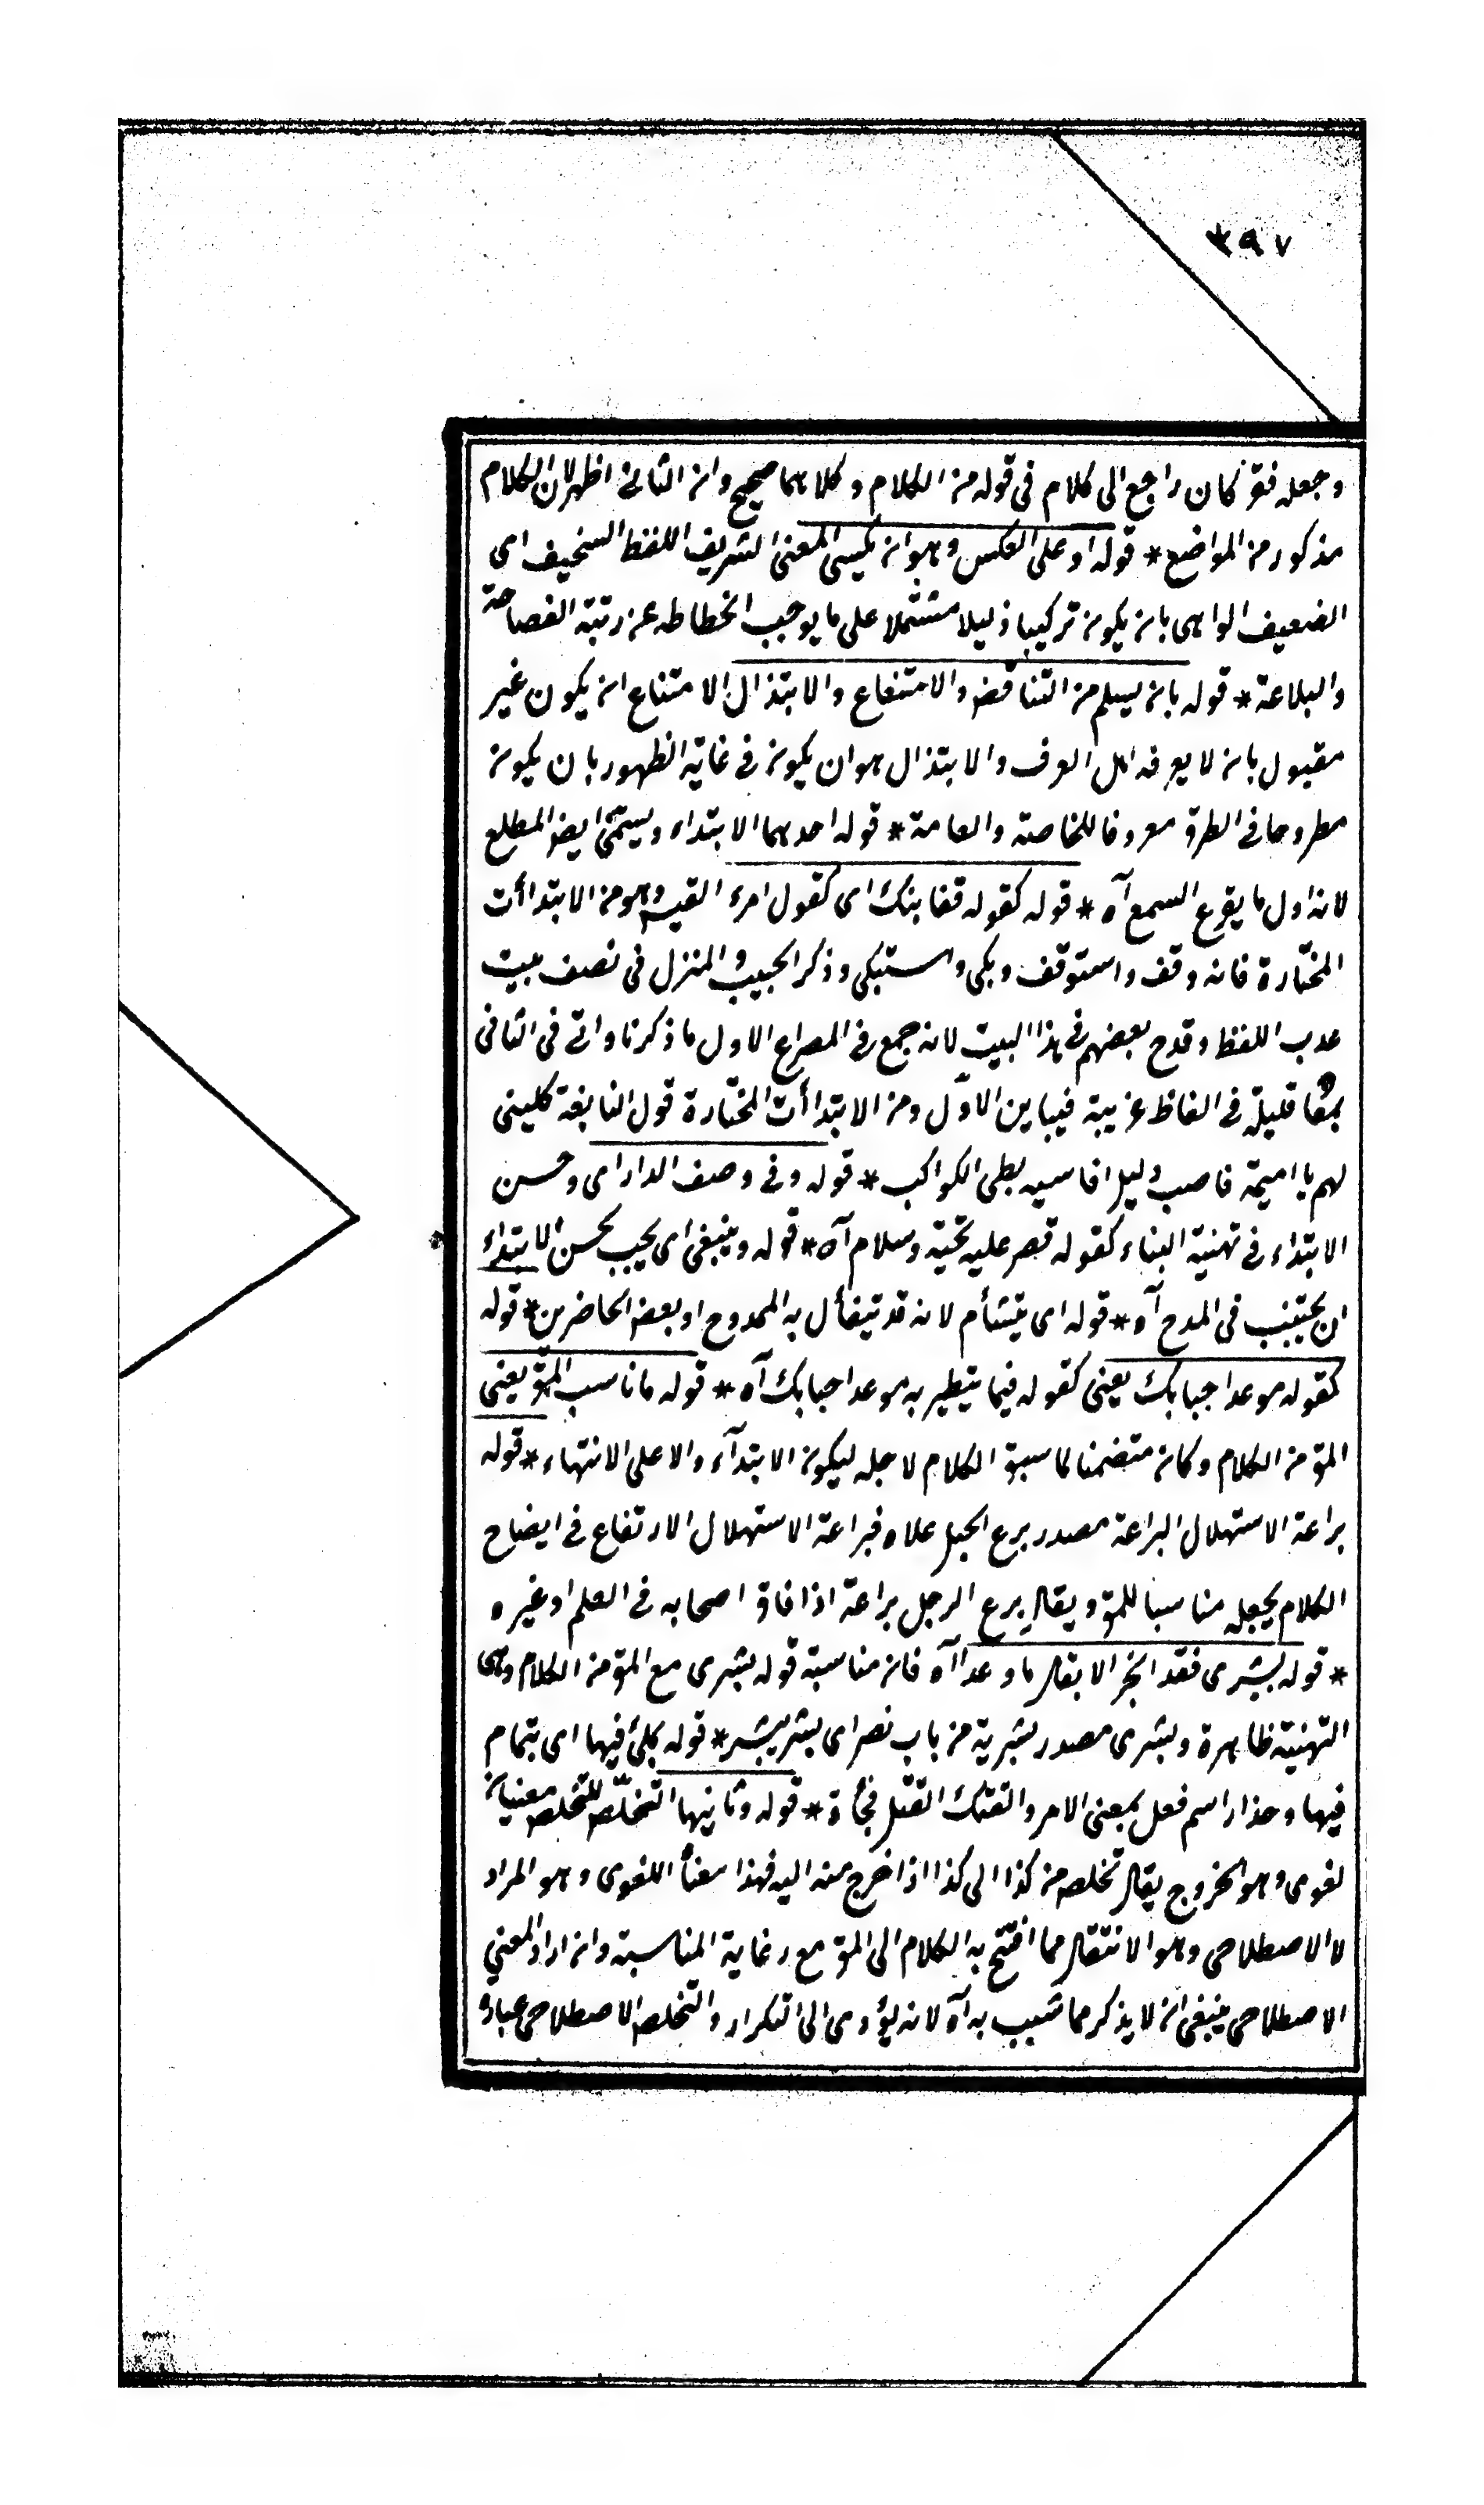 ٣٩٧
وجعله فقر كان راجع الى كلام فى قوله من الكلام وكلاهما صحيح وان الثانى اظهر لان الكلام
مذكور من المواضع * قوله او على العكس وهو ان يكيسى المعنى الشريف اللفظ السخيف اى
الضعيف الواهى بان يكون تركيبا ذليلا مشتملا على ما يوجب انحطاطه عن رتبة الفصاحة
والبلاغة * قوله بان يسلم من التناقض والامتناع والابتذال الامتناع ان يكون غير
مقبول بان لا يعرفه اهل العرف والابتذال هو ان يكون فى غاية الظهور بان يكون
مطروحا فى الطرق معروفا للخاصة والعامة * قوله احدهما الابتداء ويسمّى ايض المطلع
لانه اول ما يقرع السمع آه * قوله كقوله قفا نبك اى كقول امرء القيس وهو من الابتداآت
المختارة فانه وقف واستوقف وبكى واستبكى وذكر الحبيب والمنزل فى نصف بيت
عذب اللفظ وقدح بعضهم فى هذا البيت لانه جمع فى المصراع الاول ما ذكرنا واتى فى الثانى
قليلة فى الفاظ غريبة فيباين الاوّل ومن الابتداآت المختارة قول النابغة كلينى
لهم يا اميمة ناصب وليل اقاسيه بطئ الكواكب * قوله وفى وصف الدار اى وحسن
الابتداء فى تهنية البناء كقوله قصر عليه تحية وسلام آه * قوله وينبغى اى يجب لحسن الابتداء
ان يجتنب فى المدح آه * قوله اى يتشأم لانه قد يتفأل به الممدوح او بعض الحاضرين * قوله
كقوله موعد احبابك يعنى كقوله فيما يتطير به موعد احبابك آه * قوله ما ناسب المقـ يعنى
المقـ من الكلام وكان متضمنا لما سبق الكلام لاجله ليكون الابتدآء دالا على الانتهاء * قوله
براعة الاستهلال البراعة مصدر برع الجبل علاه فبراعة الاستهلال الارتفاع فى ايضاح
الكلام بجعله مناسبا للمقـ ويقال برع الرجل براعة اذا فاق اصحابه فى العلم او غيره
* قوله بشرى فقد انجز الاقبال ما وعدا آه فان مناسبة قوله بشرى مع المقـ من الكلام وهى
التهنية ظاهرة وبشرى مصدر بشرية من باب نصر اى بشر يبشر * قوله بملئ فيها اى بتمام
فيها وحذار اسم فعل بمعنى الامر والفتك القتل فجأة * قوله وثانيها التخلّص للتخلص معنيان
لغوى وهو الخروج يقال تخلص من كذا الى كذا اذا خرج منه اليه فهذا معناه اللغوى وهو المراد
لا الاصطلاحى وهو الانتقال مما افتتح به الكلام الى المقـ مع رعاية المناسبة وان اراد المعنى
الاصطلاحى ينبغى ان لا يذكر مما شبب به آه لانه يؤدى الى التكرار والتخلص الاصطلاحى عبارة